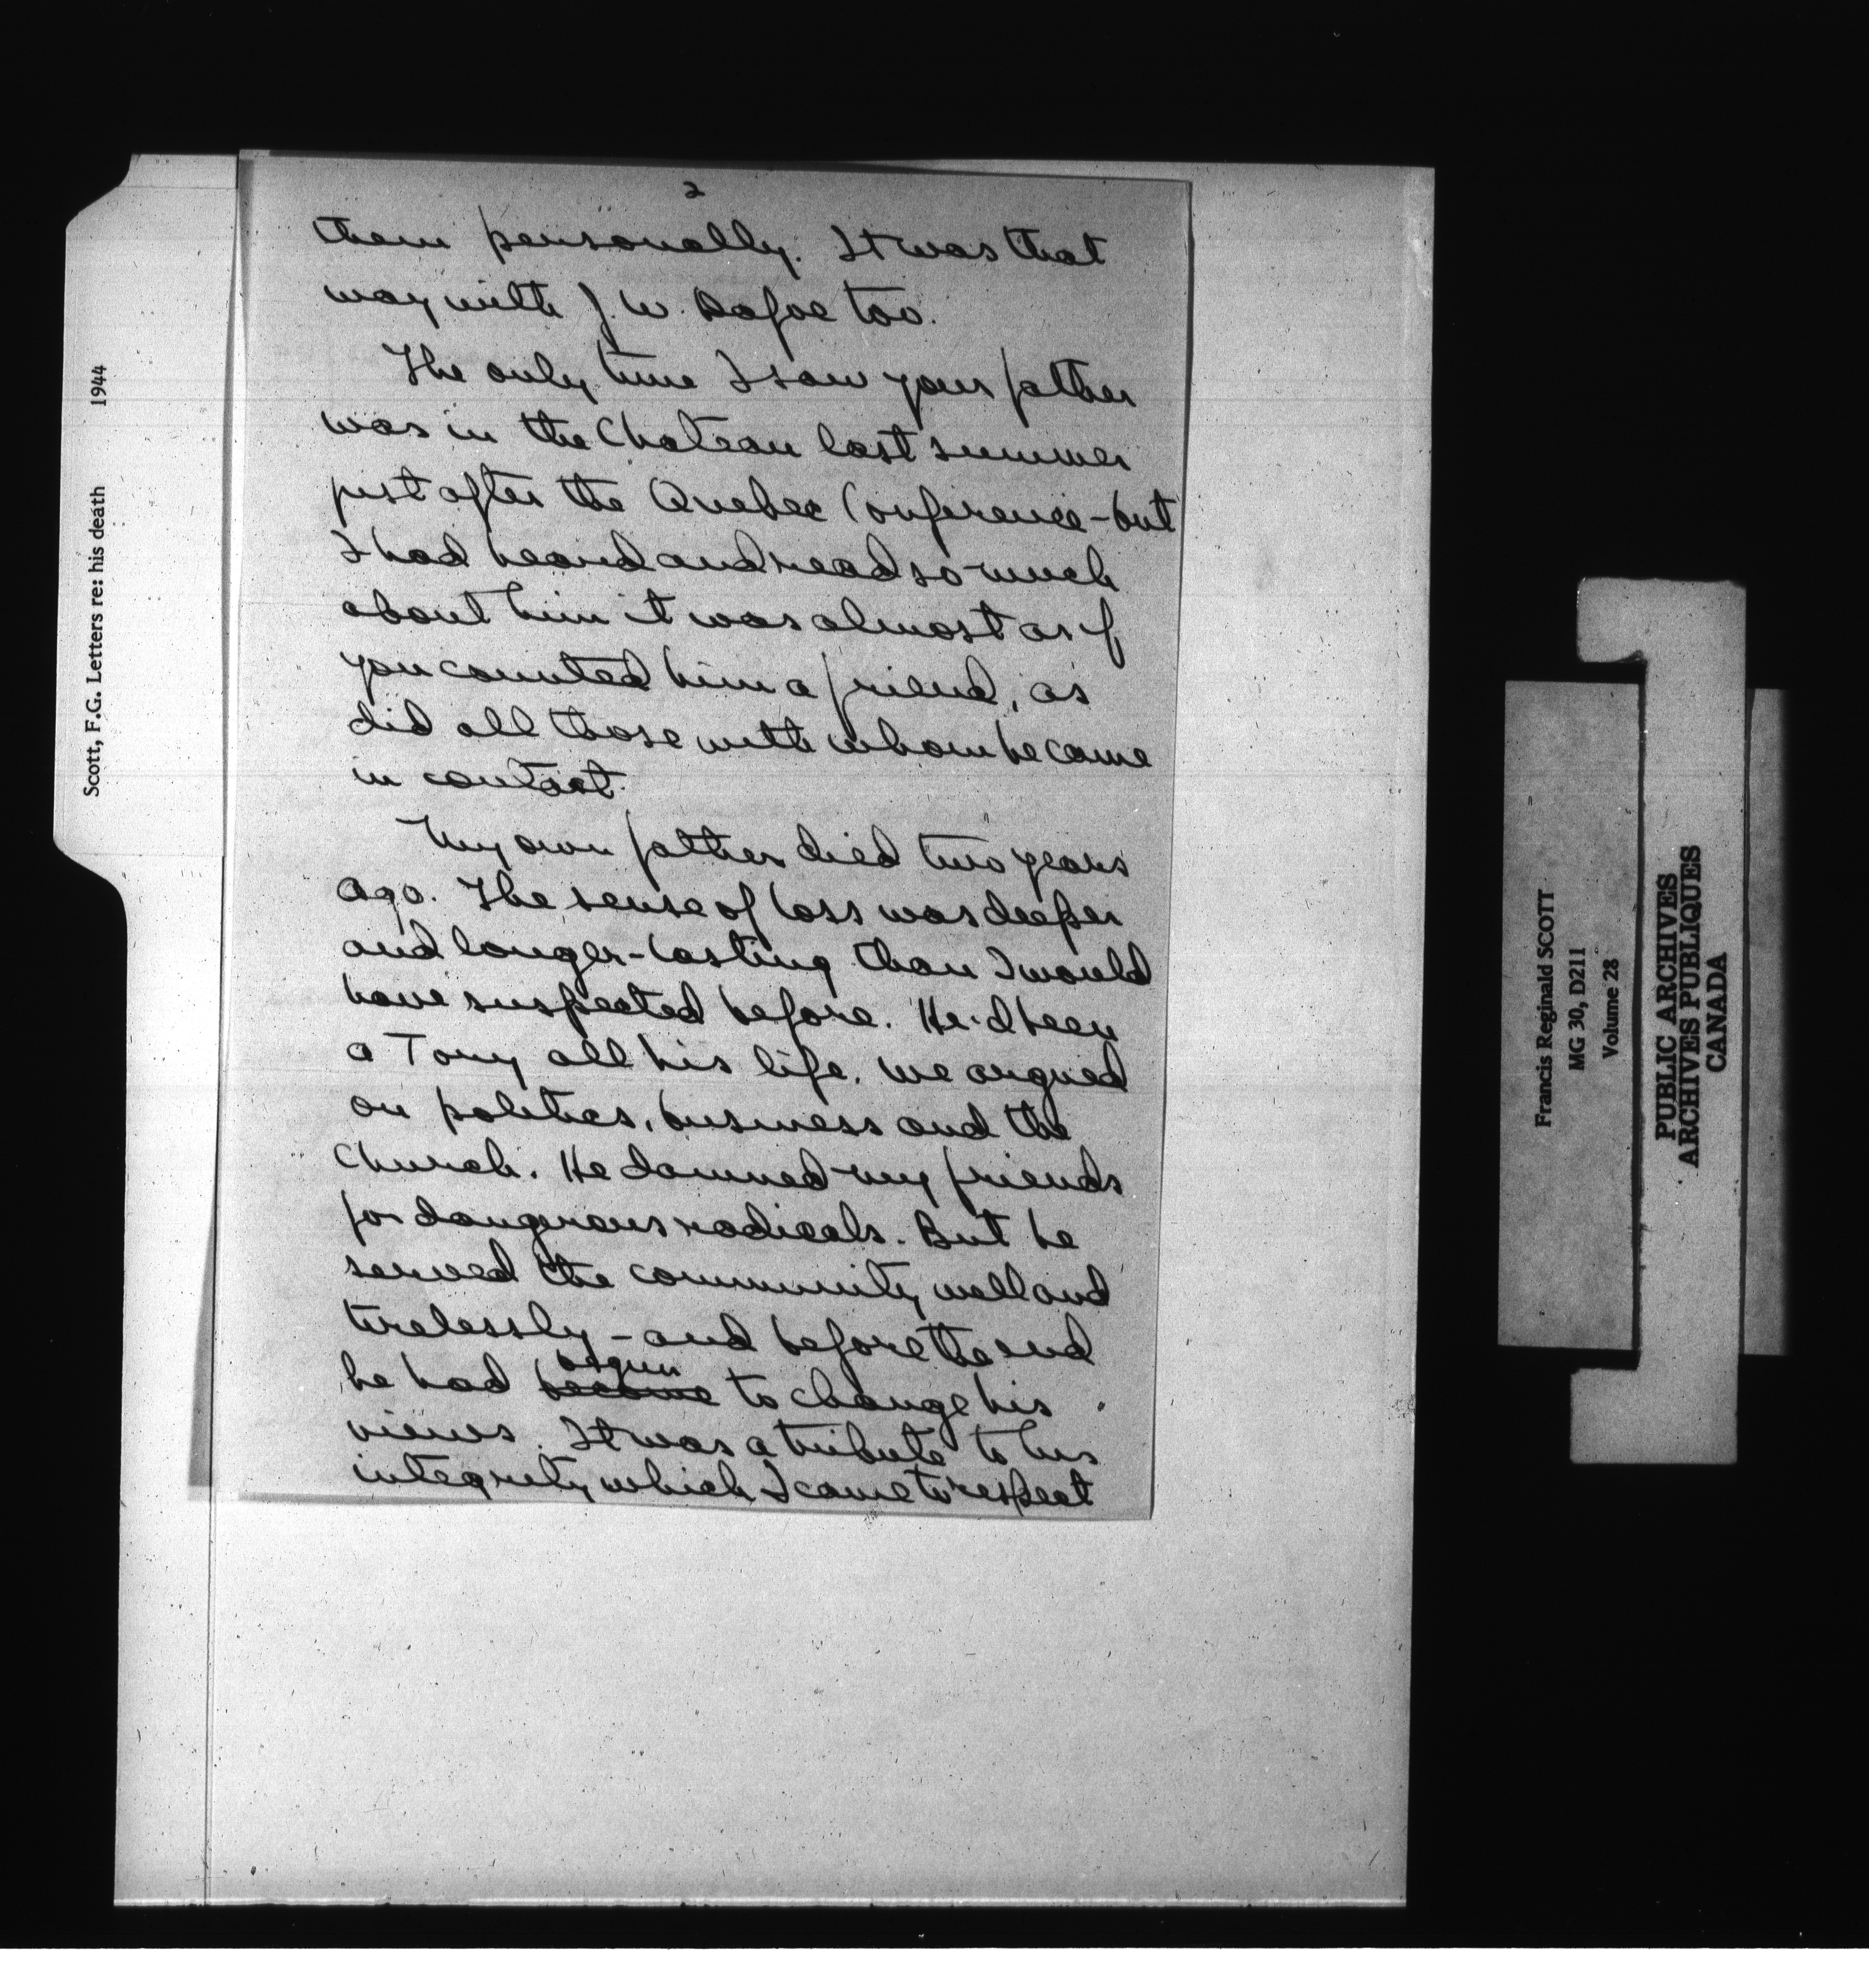 2
them personally. It was that
way with J. W. Dafoe too.
The only time I saw your father
was in the Chateau last summer
just after the Quebec Conference - but
I had heard and read so much
about him it was almost as if
you counted him a friend, as
did all those with whom he came
in contact.
My own father died two years
ago. The sense of loss was deeper
and longer-lasting than I would
have suspected before. He'd been
a Tory all his life. We argued
on politics, business and the
church. He damned my friends
for dangerous radicals. But he
served the community well and
tirelessly - and before the end
begun
he had become to change his
views. It was a tribute to his
integrity which I came to respect
Scott, F.G. Letters re: his death 1944
Francis Reginald SCOTT
MG 30, D211
Volume 28
PUBLIC ARCHIVES
ARCHIVES PUBLIQUES
CANADA